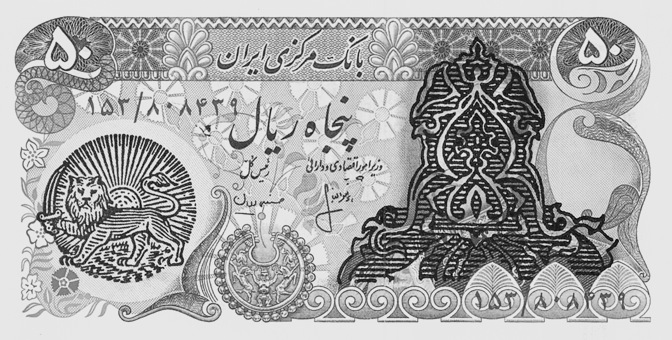 ۵۰
بانک مرکزی ایران
۵۰
۱۵۳/۸۰۸۴۳۹
پنجاه ریال
وزیر امور اقتصادی و دارائی
رئیس کل
۱۵۳/۸۰۸۴۳۹